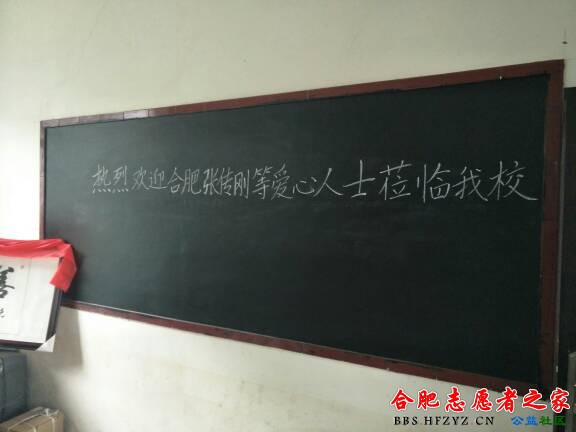 热烈欢迎合肥张传刚等爱心人士莅临我校
善
合肥志愿者之家
BBS.HFZYZ.CN 公益社区